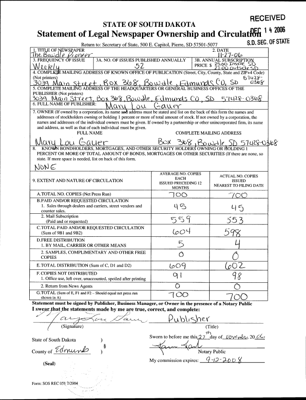 RECEIVED
DEC 14 2006
S.D. SEC. OF STATE
STATE OF SOUTH DAKOTA
Statement of Legal Newspaper Ownership and Circulation
Return to: Secretary of State, 500 E. Capitol, Pierre, SD 57501-5077
1. TITLE OF NEWSPAPER
The Bowdle Pioneer
2. DATE
11-27-06
3. FREQUENCY OF ISSUE
Weekly
3A. NO. OF ISSUES PUBLISHED ANNUALLY
52
3B. ANNUAL SUBSCRIPTION PRICE $
4. COMPLETE MAILING ADDRESS OF KNOWN OFFICE OF PUBLICATION (Street, City, County, State and ZIP+4 Code) (Not printers)
3031 Main Street, Box 368, Bowdle, Edmunds Co, SD 57428-0368
5. COMPLETE MAILING ADDRESS OF THE HEADQUARTERS OR GENERAL BUSINESS OFFICES OF THE PUBLISHER (Not printer)
3031 Main Street, Box 368, Bowdle, Edmunds Co, SD 57428-0368
6. FULL NAME OF PUBLISHER:
Mary Lou Gauer
7. OWNER (If owned by a corporation, its name and address must be stated and also on the back of this form the names and addresses of stockholders owning or holding 1 percent or more of total amount of stock. If not owned by a corporation, the names and addresses of the individual owners must be given. If owned by a partnership or other unincorporated firm, its name and address, as well as that of each individual must be given.
FULL NAME
COMPLETE MAILING ADDRESS
Mary Lou Gauer
Box 368, Bowdle SD 57428-0368
8. KNOWN BONDHOLDERS, MORTGAGES, AND OTHER SECURITY HOLDERS OWNING OR HOLDING 1 PERCENT OR MORE OF TOTAL AMOUNT OF BONDS, MORTGAGES OR OTHER SECURITIES (If there are none, so state. If more space is needed, list on back of this form.
NONE
9. EXTENT AND NATURE OF CIRCULATION
AVERAGE NO. COPIES EACH ISSUE PRECEDING 12 MONTHS
ACTUAL NO. COPIES ISSUED NEAREST TO FILING DATE
A. TOTAL NO. COPIES (Net Press Run) 700 700
B. PAID AND/OR REQUESTED CIRCULATION
1. Sales through dealers and carriers, street vendors and counter sales. 45 45
2. Mail Subscription (Paid and or requested) 559 553
C. TOTAL PAID AND/OR REQUESTED CIRCULATION (Sum of 9B1 and 9B2) 604 598
D. FREE DISTRIBUTION
1. BY MAIL, CARRIER OR OTHER MEANS 5 4
2. SAMPLES, COMPLIMENTARY AND OTHER FREE COPIES 0 0
E. TOTAL DISTRIBUTION (Sum of C, D1 and D2) 609 602
F. COPIES NOT DISTRIBUTED
1. Office use, left over, unaccounted, spoiled after printing 91 98
2. Return from News Agents 0 0
G. TOTAL (Sum of E, F1 and F2 - Should equal net press run shown in A) 700 700
Statement must be signed by Publisher, Business Manager, or Owner in the presence of a Notary Public
I swear that the statements made by me are true, correct, and complete:
Mary Lou Gauer
Publisher
(Signature)
(Title)
State of South Dakota )
County of Edmunds )
Sworn to before me this 27 day of November, 2006
Notary Public
(Seal)
My commission expires: 9-12-2008
Form: SOS REC 051 7/2004